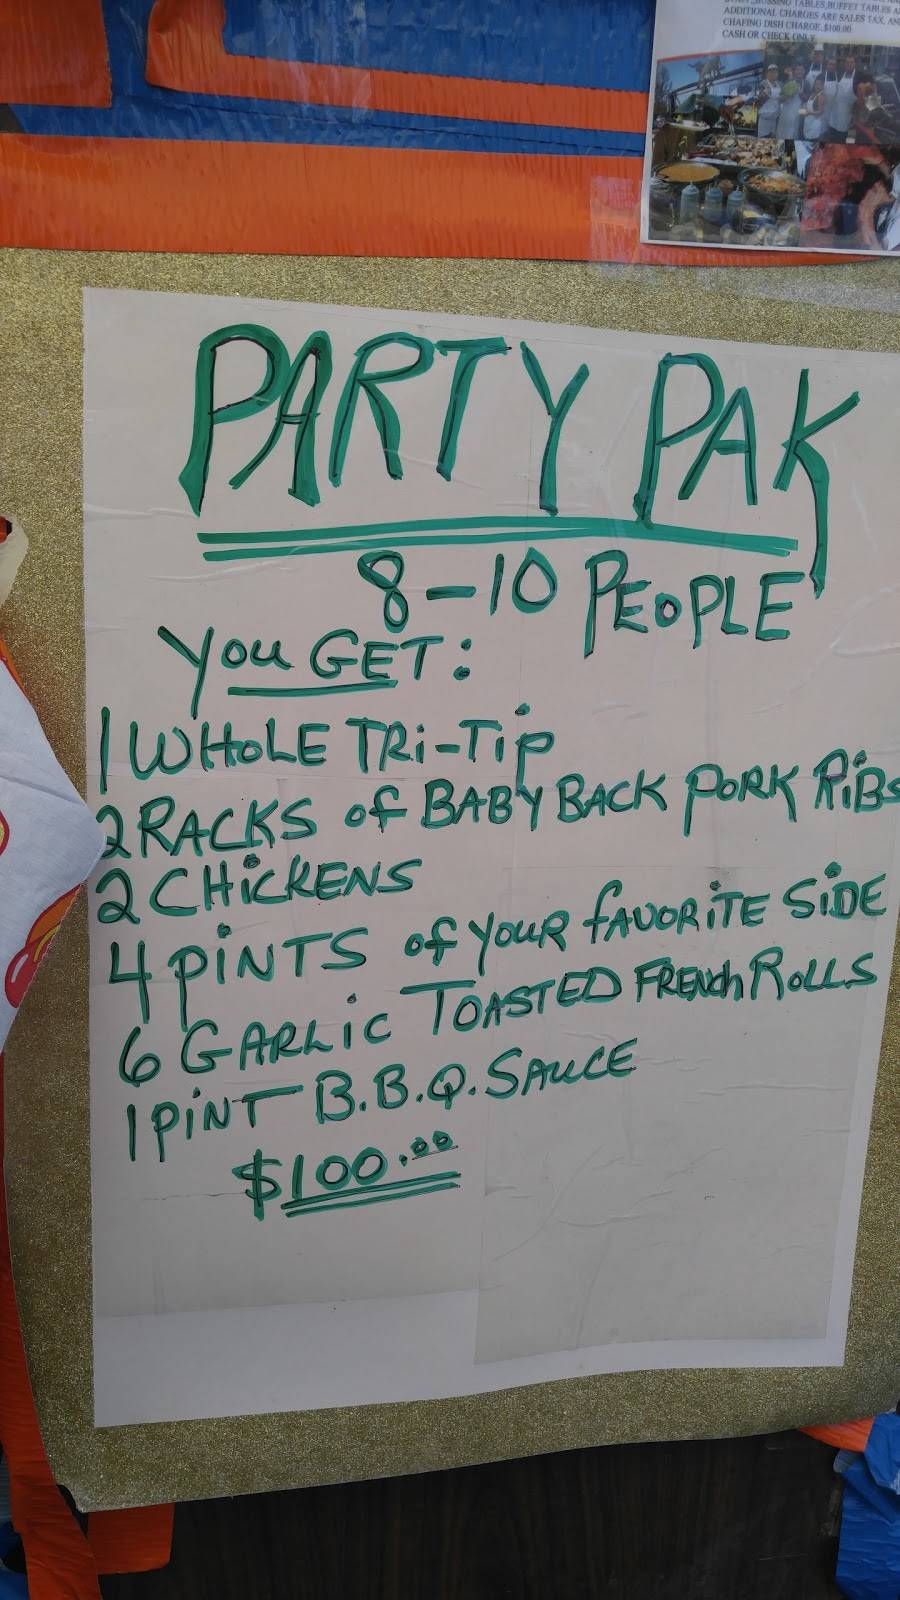 BUSSING TABLES,BUFFET TABLES
ADDITIONAL CHARGES ARE SALES TAX,
CHAFING DISH CHARGE..$100.00
CASH OR CHECK ONLY
PARTY PAK
8-10 PEOPLE
you GET:
1 WHOLE TRi-Tip
2 RACKS of BABY BACK PORK RiBS
2 CHiCKENS
4 PiNTS of YOUR fAVORiTE SiDE
6 GARLiC TOASTED FRENCh ROLLS
1 PiNT B.B.Q. SAUCE
$100.00